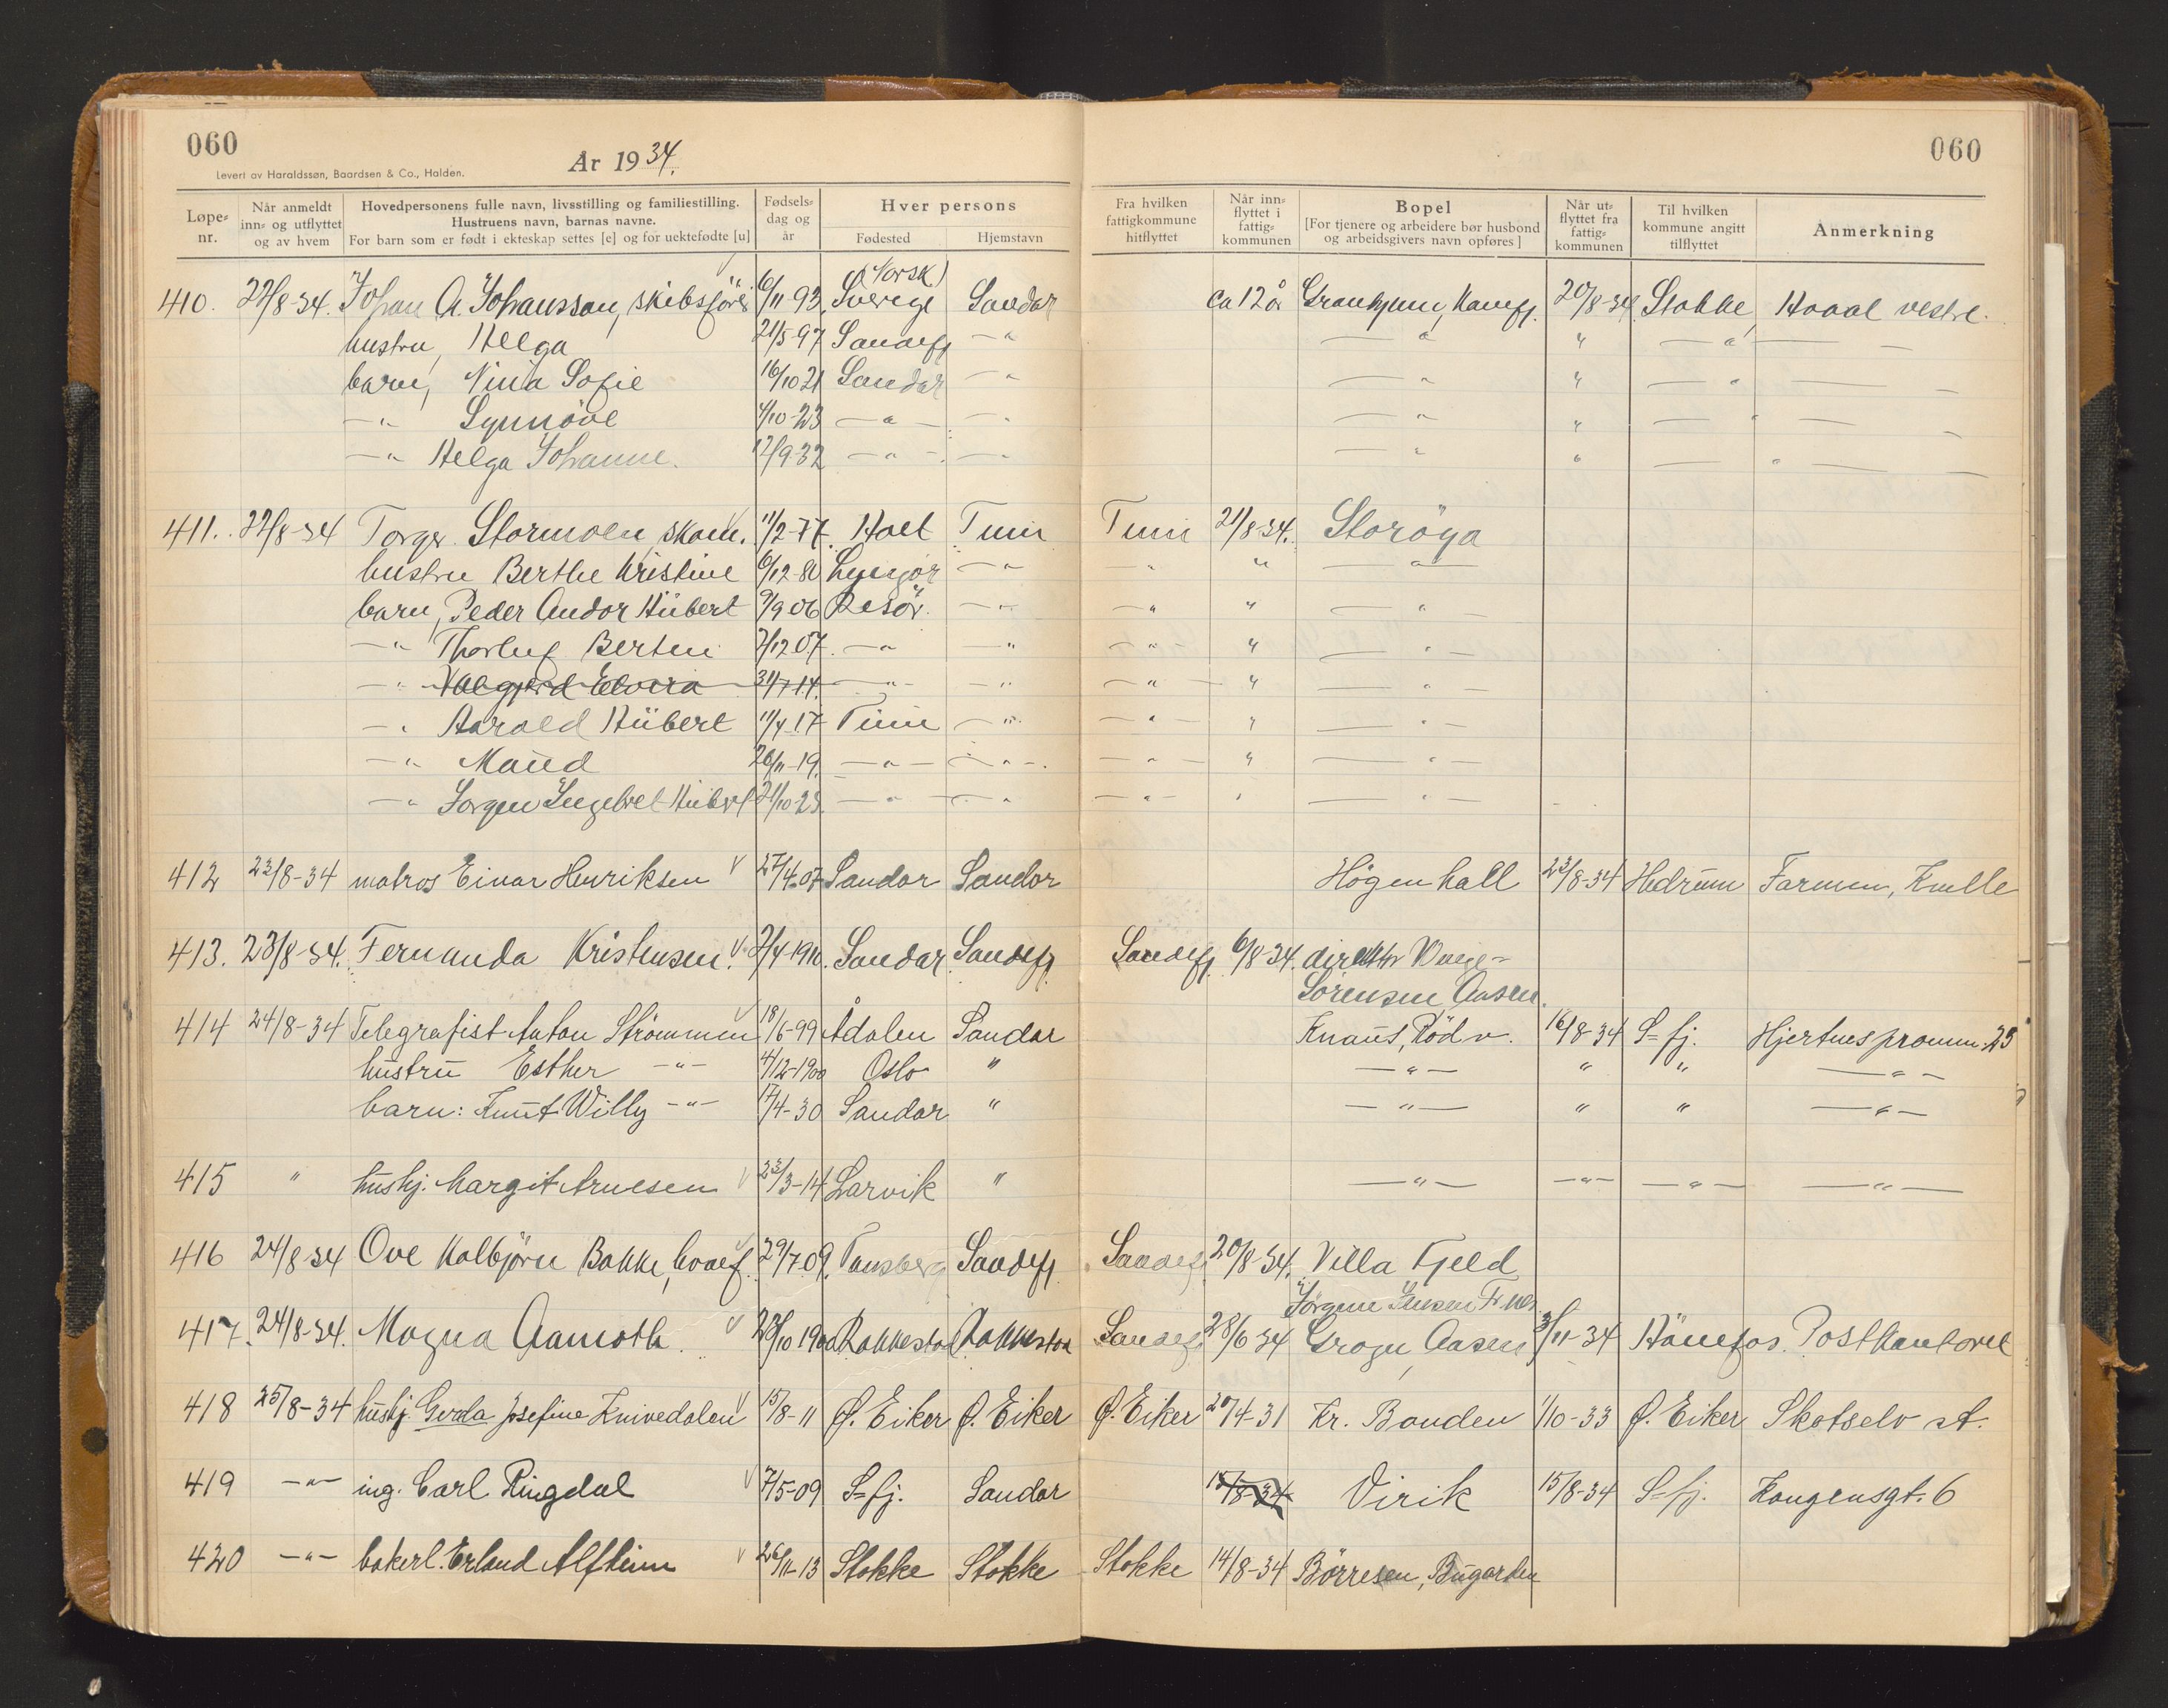 060
060
Levert av Haraldssøn, Baardsen & Co., Halden.
År 1934.
Løpe-nr.
Når anmeldt inn- og utflyttet og av hvem
Hovedpersonens fulle navn, livsstilling og familiestilling. Hustruens navn, barnas navne. For barn som er født i ekteskap settes [e] og for uektefødte [u]
Fødsels-dag og år
Hver persons
Fødested
Hjemstavn
Fra hvilken fattigkommune hitflyttet
Når inn-flyttet i fattig-kommunen
Bopel [For tjenere og arbeidere bør husbond og arbeidsgivers navn opføres]
Når ut-flyttet fra fattig-kommunen
Til hvilken kommune angitt tilflyttet
Anmerkning
(Norsk)
410. 22/8-34. Johan A. Johansson, skibsfører 6/11-93 Sverige Sandar ca 12 år 20/8-34 Stokke, Haaal vestre.
hustru, Helga 21/5-97 Sandefj — " — " — " " — " —
barn, Nina Sofie 16/10 21 Sandar — " — " " — " —
— " Synnöve 4/10-23 — " — — " — " " — " —
— " Helga Johanne. 17/9-32 — " — — " — " " — " —
411. 22/8-34 Torgr. Stormoen skom. 11/2-77. Holt Tune Tune 21/8-34. Storöya
hustru Berthe Kristine 6/12-80 Lyngör — " " " — " —
barn, Peder Andor Hübert 9/9 06 Resör. — " — " " — " —
— " Thorluf Berten 7/12 07. — " — " — " — " — " —
— " Valgjerd Elvira 31/7 14. — " — — " — " — " — " —
— " Harald Hübert 11/4-17 Tune — " — " " — " —
— " Maud 26/11-19. — " — — " —. — " — " — " —
— " Jorgen Ingebret Hübert 21/10-23. — " — — " — " — " — " —
412 23/8-34 matros Einar Henriksen 27/4-07 Sandar Sandar Högenhall 23/8-34 Hedrum Farmen, Kvelle
413. 23/8-34. Fernanda Kristensen. 2/4-1910. Sandar Sandefj Sandefj. 6/8-34. direktör Virge-
Sörensen, Aasen.
414 24/8-34 Telegrafist Anton Strömmen 18/6-99 Ådalen Sandar Knaus, Röd v. 16/8-34 S-fj. Hjertnespromm. 25
hustru Esther — " — 4/12-1900 Oslo " — " — " " — " —
barn: Knut Willy — " — 17/4-30 Sandar " — " — " " — " —
415 " hushj. Margit Arnesen 23/3-14 Larvik " — " — — " — — " — — " —
416 24/8-34 Ove Kolbjörn Bakke, 29/7-09. Tønsberg Sandefj Sandefj 20/8-34. Villa Fjeld
417. 24/8-34. Magna Aamoth. 23/10 1900 Rakkestad Rakkestad Sandefj 28/6 34 Aasen 3/11-34 Hönefos. Postkontoret
418 25/8-34 hushj. Gerda Josefine Knivedalen 15/8-11 Ø. Eiker Ø. Eiker Ø. Eiker 20/4-31 Kr. Bonden 1/10-33 Ø. Eiker Skotselv st.
419 — " — ing. Carl Ringdal 7/5-09 S-fj. Sandar 15/8-34 Virik 15/8-34 S-fj. Kongensgt. 6
420 — " — bakerl. Erland Alfheim 26/11-13 Stokke Stokke Stokke 14/8-34 Börresen, Bugarden